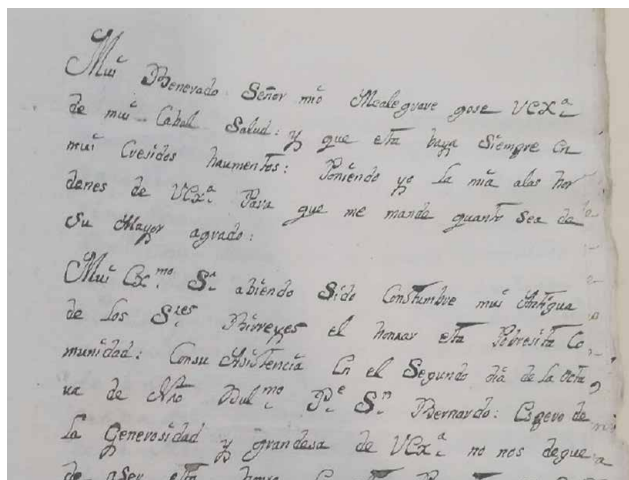 Mui Benerado Señor mio Mealegrare gose VEx.ª
de mui Cabal Salud: y que esta baya Siempre En
mui Cresidos haumentos: Poniendo yo la mia alas hor
denes de VEx.ª Para que me mande quanto Sea de
Su Mayor agrado:
Mui Ex.mo S.r abiendo Sido Constumbre mui Antigua
de los S.res Birreyes el honrar esta Pobresita Co
munidad: Consu Asistencia En el Segundo dia de la Octa
va de Nro Dul.mo P.e S.n Bernardo: Espero de
la Generosidad y grandesa de VEx.ª no nos degue
de aser esta honra